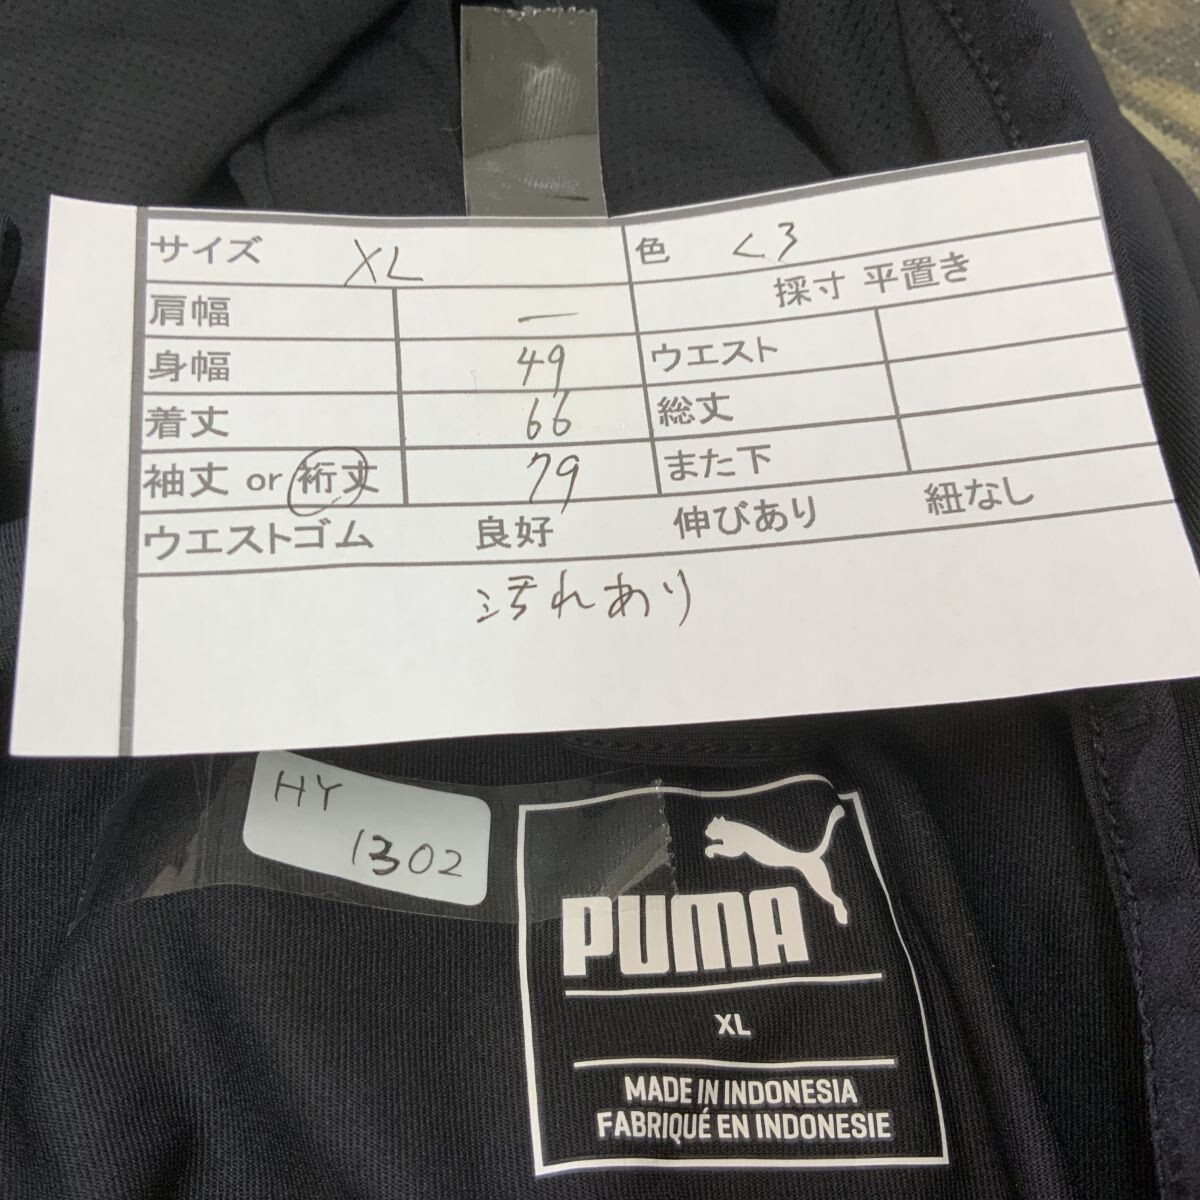 サイズ XL 色 くろ
採寸 平置き
肩幅 —
身幅 49 ウエスト
着丈 66 総丈
袖丈 or 裄丈 79 また下
ウエストゴム 良好 伸びあり 紐なし
汚れあり
HY
1302
PUMA
XL
MADE IN INDONESIA
FABRIQUÉ EN INDONESIE